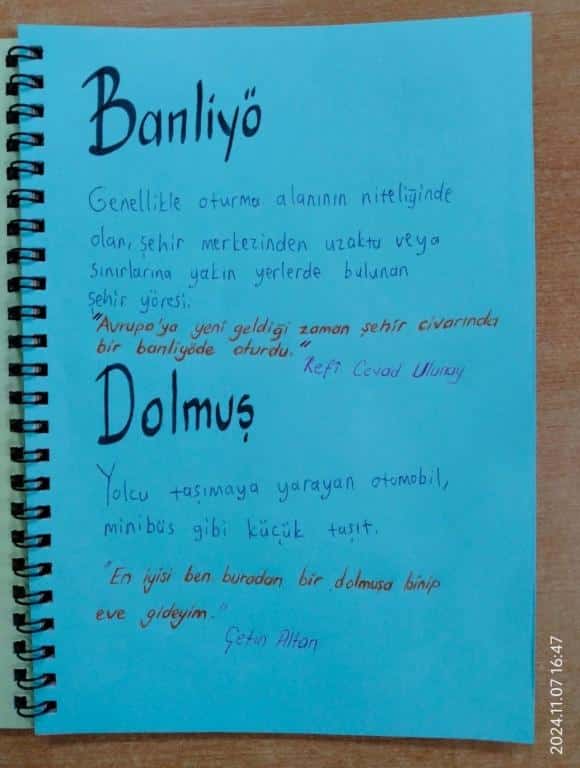 Banliyö
Genellikle oturma alanının niteliğinde
olan, şehir merkezinden uzakta veya
sınırlarına yakın yerlerde bulunan
şehir yöresi.
"Avrupa'ya yeni geldiği zaman şehir civarında
bir banliyöde oturdu."
Refi Cevad Ulunay
Dolmuş
Yolcu taşımaya yarayan otomobil,
minibüs gibi küçük taşıt.
"En iyisi ben buradan bir dolmuşa binip
eve gideyim."
Çetin Altan
2024.11.07 16:47